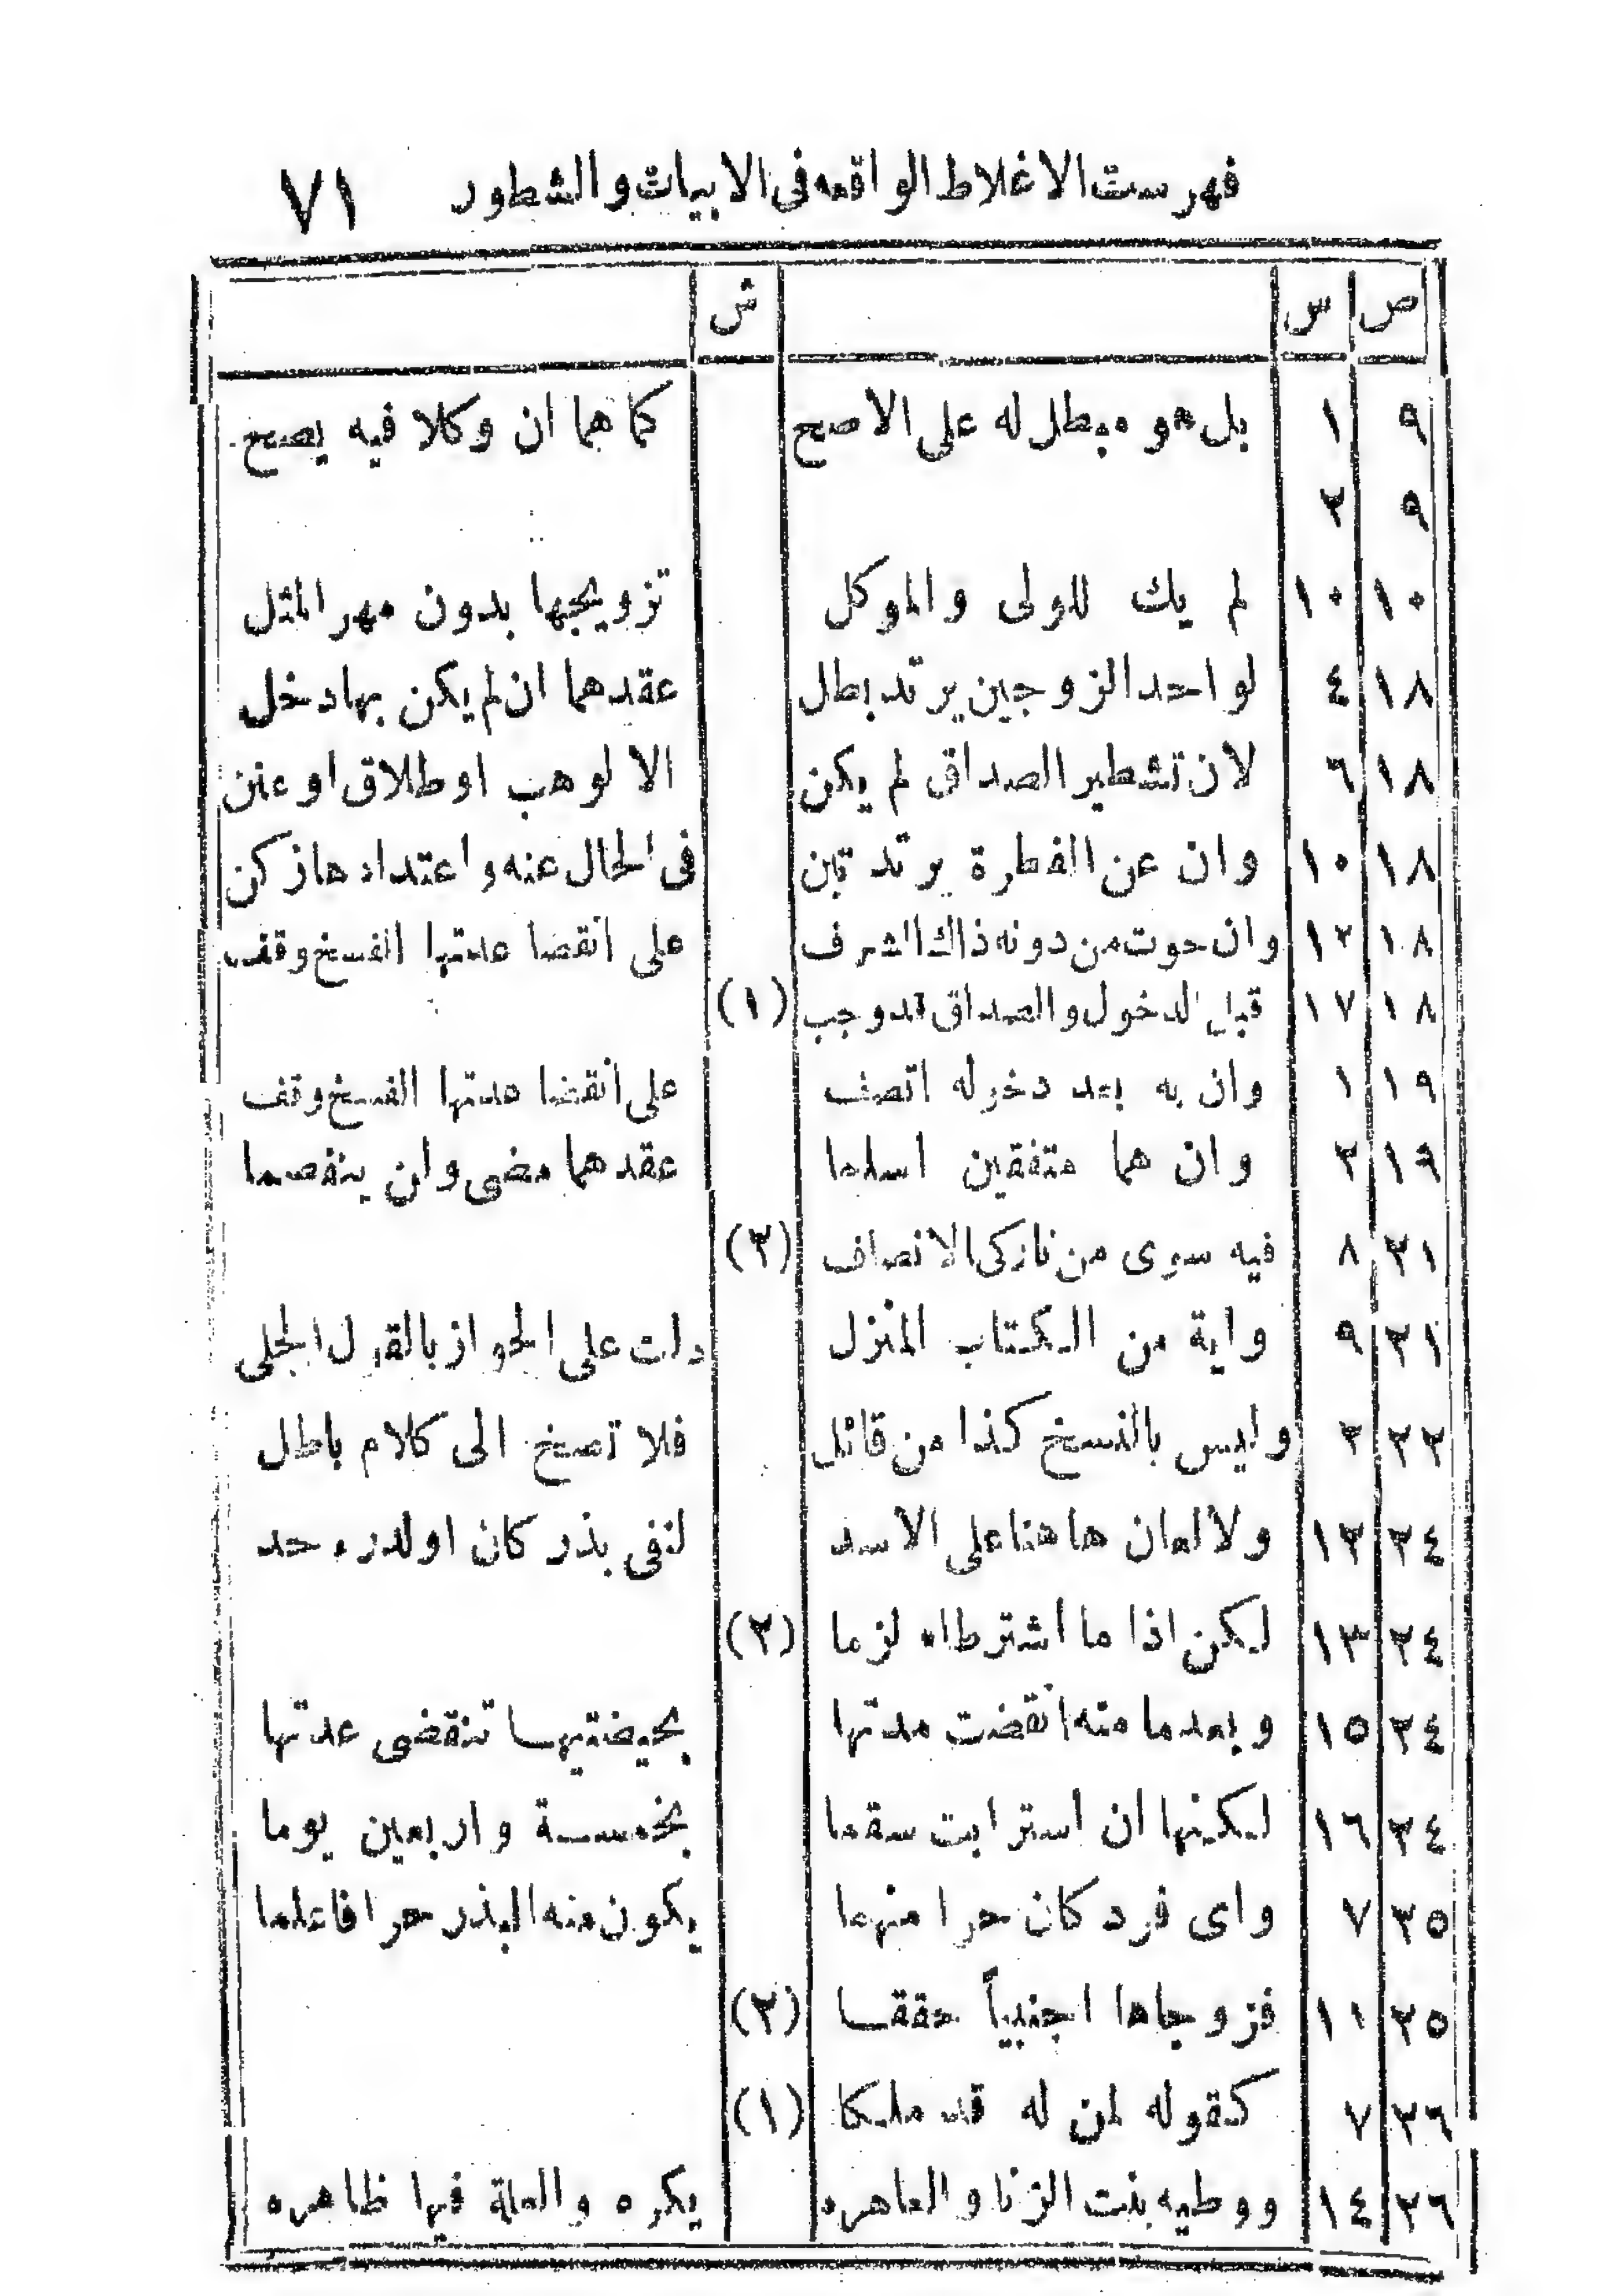 فهرست الاغلاط الواقعه فى الابيات والشطور ٧١
ص س ش
٩ ١ بل هو مبطل له على الاصح كما هما ان وكلا فيه يصح
٩ ٢
١٠ ١٠ لم يك للولى والموكل تزويجها بدون مهر المثل
١٨ ٤ لو احد الزوجين يرتد بطل عقدهما ان لم يكن بها دخل
١٨ ٦ لان تشطير الصداق لم يكن الا لوهب او طلاق او عنن
١٨ ١٠ وان عن الفطرة يرتد تبن فى الحال عنه واعتدادها زكن
١٨ ١٢ وان حوت من دونه ذاك الشرف على انقضا عدتها الفسخ وقف
١٨ ١٧ قبل الدخول والصداق قد وجب (١)
١٩ ١ وان به بعد دخوله اتصف على انقضا عدتها الفسخ وقف
١٩ ٢ وان هما متفقين اسلما عقدهما مضى ولن ينفصما
٢١ ٨ فيه سوى من تاركى الانصاف (٢)
٢١ ٩ واية من الكتاب المنزل دلت على الجواز بالقول الجلى
٢٢ ٢ وليس بالنسخ كذا من قائل فلا تصخ الى كلام باطل
٢٤ ١٢ ولا لعان هاهنا على الاسد لنفى بذر كان او لدرء حد
٢٤ ١٣ لكن اذا ما اشترطاه لزما (٢)
٢٤ ١٥ وبعد ما منه انقضت مدتها بحيضتيها تنقضى عدتها
٢٤ ١٦ لكنها ان استرابت سقما بخمسة واربعين يوما
٢٥ ٧ واى فرد كان حرا منهما يكون منه البذر حرا فاعلما
٢٥ ١١ فزوجاها اجنبياً حققا (٢)
٢٦ ٧ كقوله لمن له قد ملكا (١)
٢٦ ١٤ ووطيه بنت الزنا والعاهره يكره والعلة فيها ظاهره